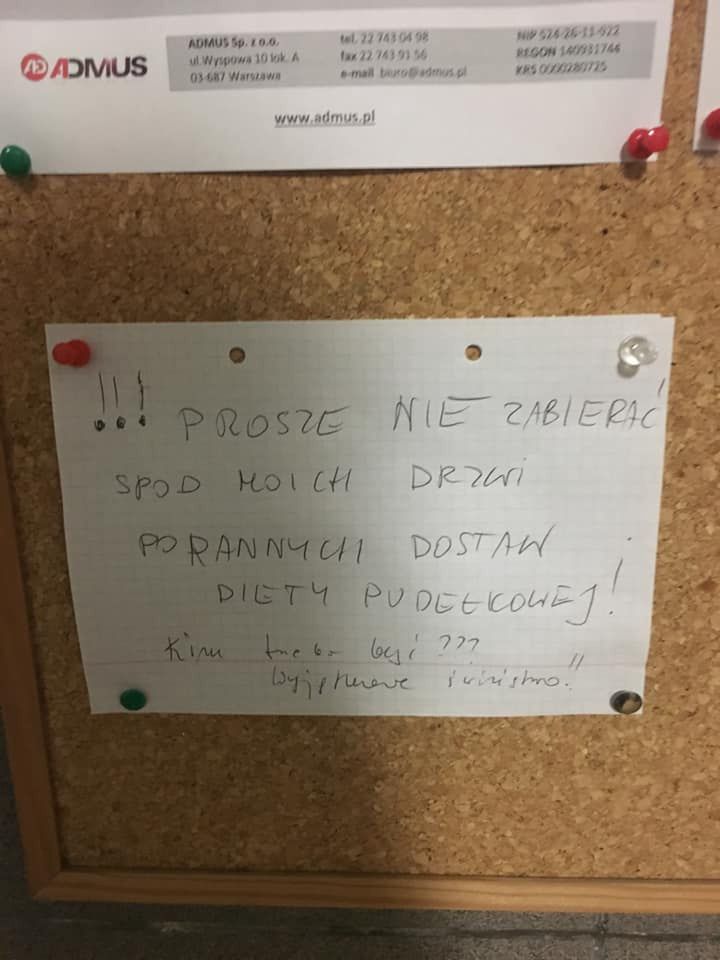 ADMUS
ADMUS Sp. z o.o.
ul.Wyspowa 10 lok. A
03-687 Warszawa
tel. 22 743 04 98
fax 22 743 91 56
e-mail biuro@admus.pl
NIP 524-26-11-922
REGON 140931744
KRS 0000280725
www.admus.pl
!!! PROSZE NIE ZABIERAĆ
SPOD MOICH DRZWI
PORANNYCH DOSTAW
DIETY PUDEŁKOWEJ!
Kim trzeba być???
Wyjątkowe świństwo!!